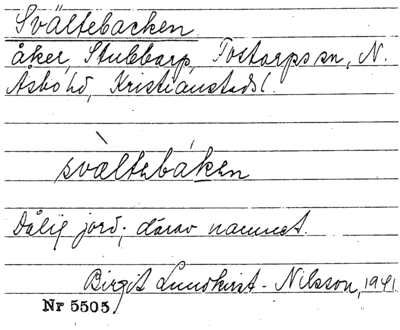 Svältebacken
åker, Stubbarp, Tostarps sn, N.
Åsbo hd, Kristianstads l.
svàltebáken
Dålig jord; därav namnet.
Birgit Lundkvist-Nilsson, 1941
Nr 5505